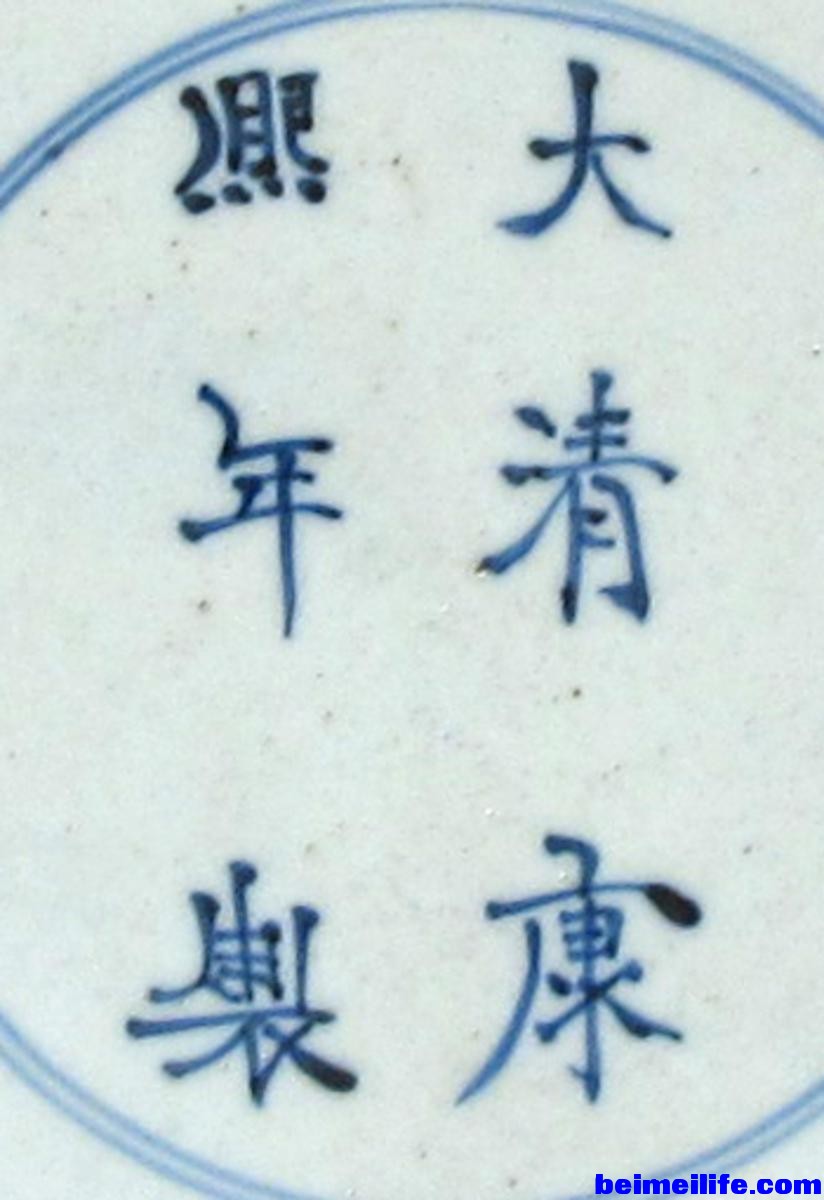 大清康
熙年製
beimeilife.com